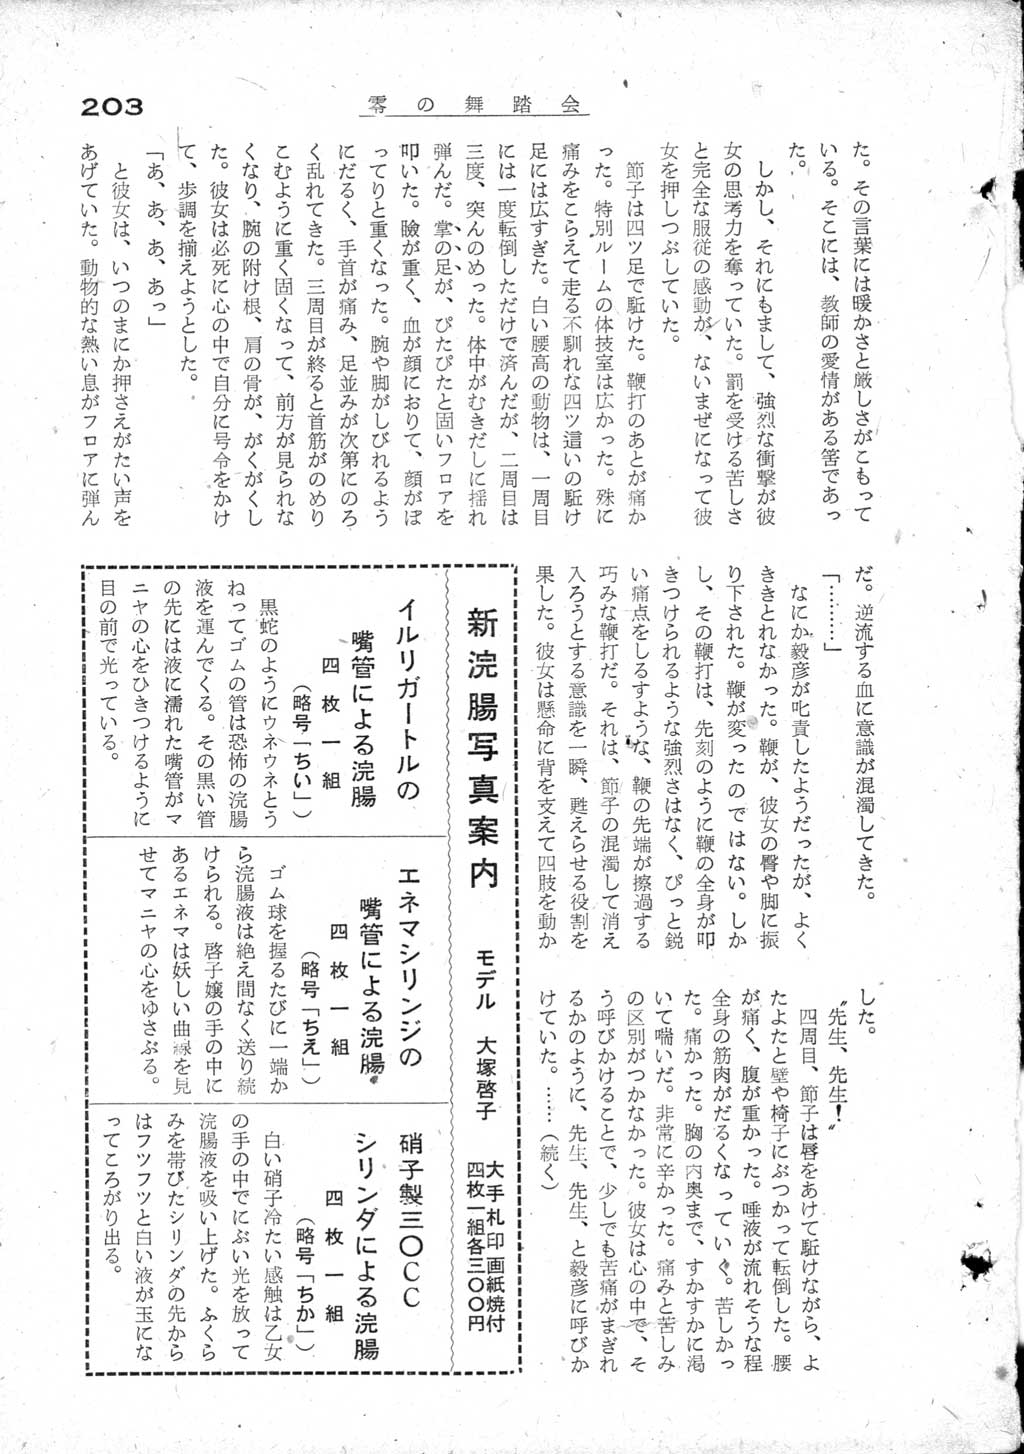 203
零の舞踏会
た。その言葉には暖かさと厳しさがこもって
いる。そこには、教師の愛情がある筈であっ
た。
しかし、それにもまして、強烈な衝撃が彼
女の思考力を奪っていた。罰を受ける苦しさ
と完全な服従の感動が、ないまぜになって彼
女を押しつぶしていた。
節子は四ツ足で駈けた。鞭打のあとが痛か
った。特別ルームの体技室は広かった。殊に
痛みをこらえて走る不馴れな四ツ這いの駈け
足には広すぎた。白い腰高の動物は、一周目
には一度転倒しただけで済んだが、二周目は
三度、突んのめった。体中がむきだしに揺れ
弾んだ。掌の足が、ぴたぴたと固いフロアを
叩いた。瞼が重く、血が顔におりて、顔がぽ
ってりと重くなった。腕や脚がしびれるよう
にだるく、手首が痛み、足並みが次第にのろ
く乱れてきた。三周目が終ると首筋がのめり
こむように重く固くなって、前方が見られな
くなり、腕の附け根、肩の骨が、がくがくし
た。彼女は必死に心の中で自分に号令をかけ
て、歩調を揃えようとした。
「あ、あ、あ、あっ」
と彼女は、いつのまにか押さえがたい声を
あげていた。動物的な熱い息がフロアに弾ん
だ。逆流する血に意識が混濁してきた。
「………」
なにか毅彦が叱責したようだったが、よく
ききとれなかった。鞭が、彼女の臀や脚に振
り下された。鞭が変ったのではない。しか
し、その鞭打は、先刻のように鞭の全身が叩
きつけられるような強烈さはなく、ぴっと鋭
い痛点をしるすような、鞭の先端が擦過する
巧みな鞭打だ。それは、節子の混濁して消え
入ろうとする意識を一瞬、甦えらせる役割を
果した。彼女は懸命に背を支えて四肢を動か
した。
〝先生、先生!〟
四周目、節子は唇をあけて駈けながら、よ
たよたと壁や椅子にぶつかって転倒した。腰
が痛く、腹が重かった。唾液が流れそうな程
全身の筋肉がだるくなっていく。苦しかっ
た。痛かった。胸の内奥まで、すかすかに渇
いて喘いだ。非常に辛かった。痛みと苦しみ
の区別がつかなかった。彼女は心の中で、そ
う呼びかけることで、少しでも苦痛がまぎれ
るかのように、先生、先生、と毅彦に呼びか
けていた。……(続く)
新浣腸写真案内 モデル 大塚啓子
大手札印画紙焼付
四枚一組各三〇〇円
イルリガートルの
嘴管による浣腸
四枚一組
(略号「ちい」)
黒蛇のようにウネウネとう
ねってゴムの管は恐怖の浣腸
液を運んでくる。その黒い管
の先には液に濡れた嘴管がマ
ニヤの心をひきつけるように
目の前で光っている。
エネマシリンジの
嘴管による浣腸
四枚一組
(略号「ちえ」)
ゴム球を握るたびに一端か
ら浣腸液は絶え間なく送り続
けられる。啓子嬢の手の中に
あるエネマは妖しい曲線を見
せてマニヤの心をゆさぶる。
硝子製三〇CC
シリンダによる浣腸
四枚一組
(略号「ちか」)
白い硝子冷たい感触は乙女
の手の中でにぶい光を放って
浣腸液を吸い上げた。ふくら
みを帯びたシリンダの先から
はフツフツと白い液が玉にな
ってころがり出る。